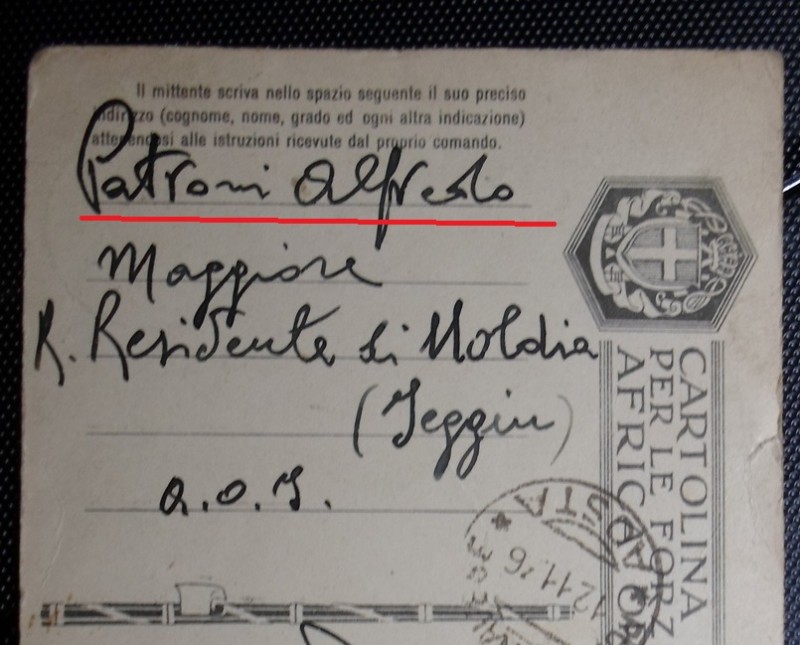 Il mittente scriva nello spazio seguente il suo preciso
indirizzo (cognome, nome, grado ed ogni altra indicazione)
attenendosi alle istruzioni ricevute dal proprio comando.
Patroni Alfredo
Maggiore
R. Residente di Uoldia
(Jeggiu)
A.O.I.
CARTOLINA
PER LE FORZ
AFRIC
POSTA
12.11.36